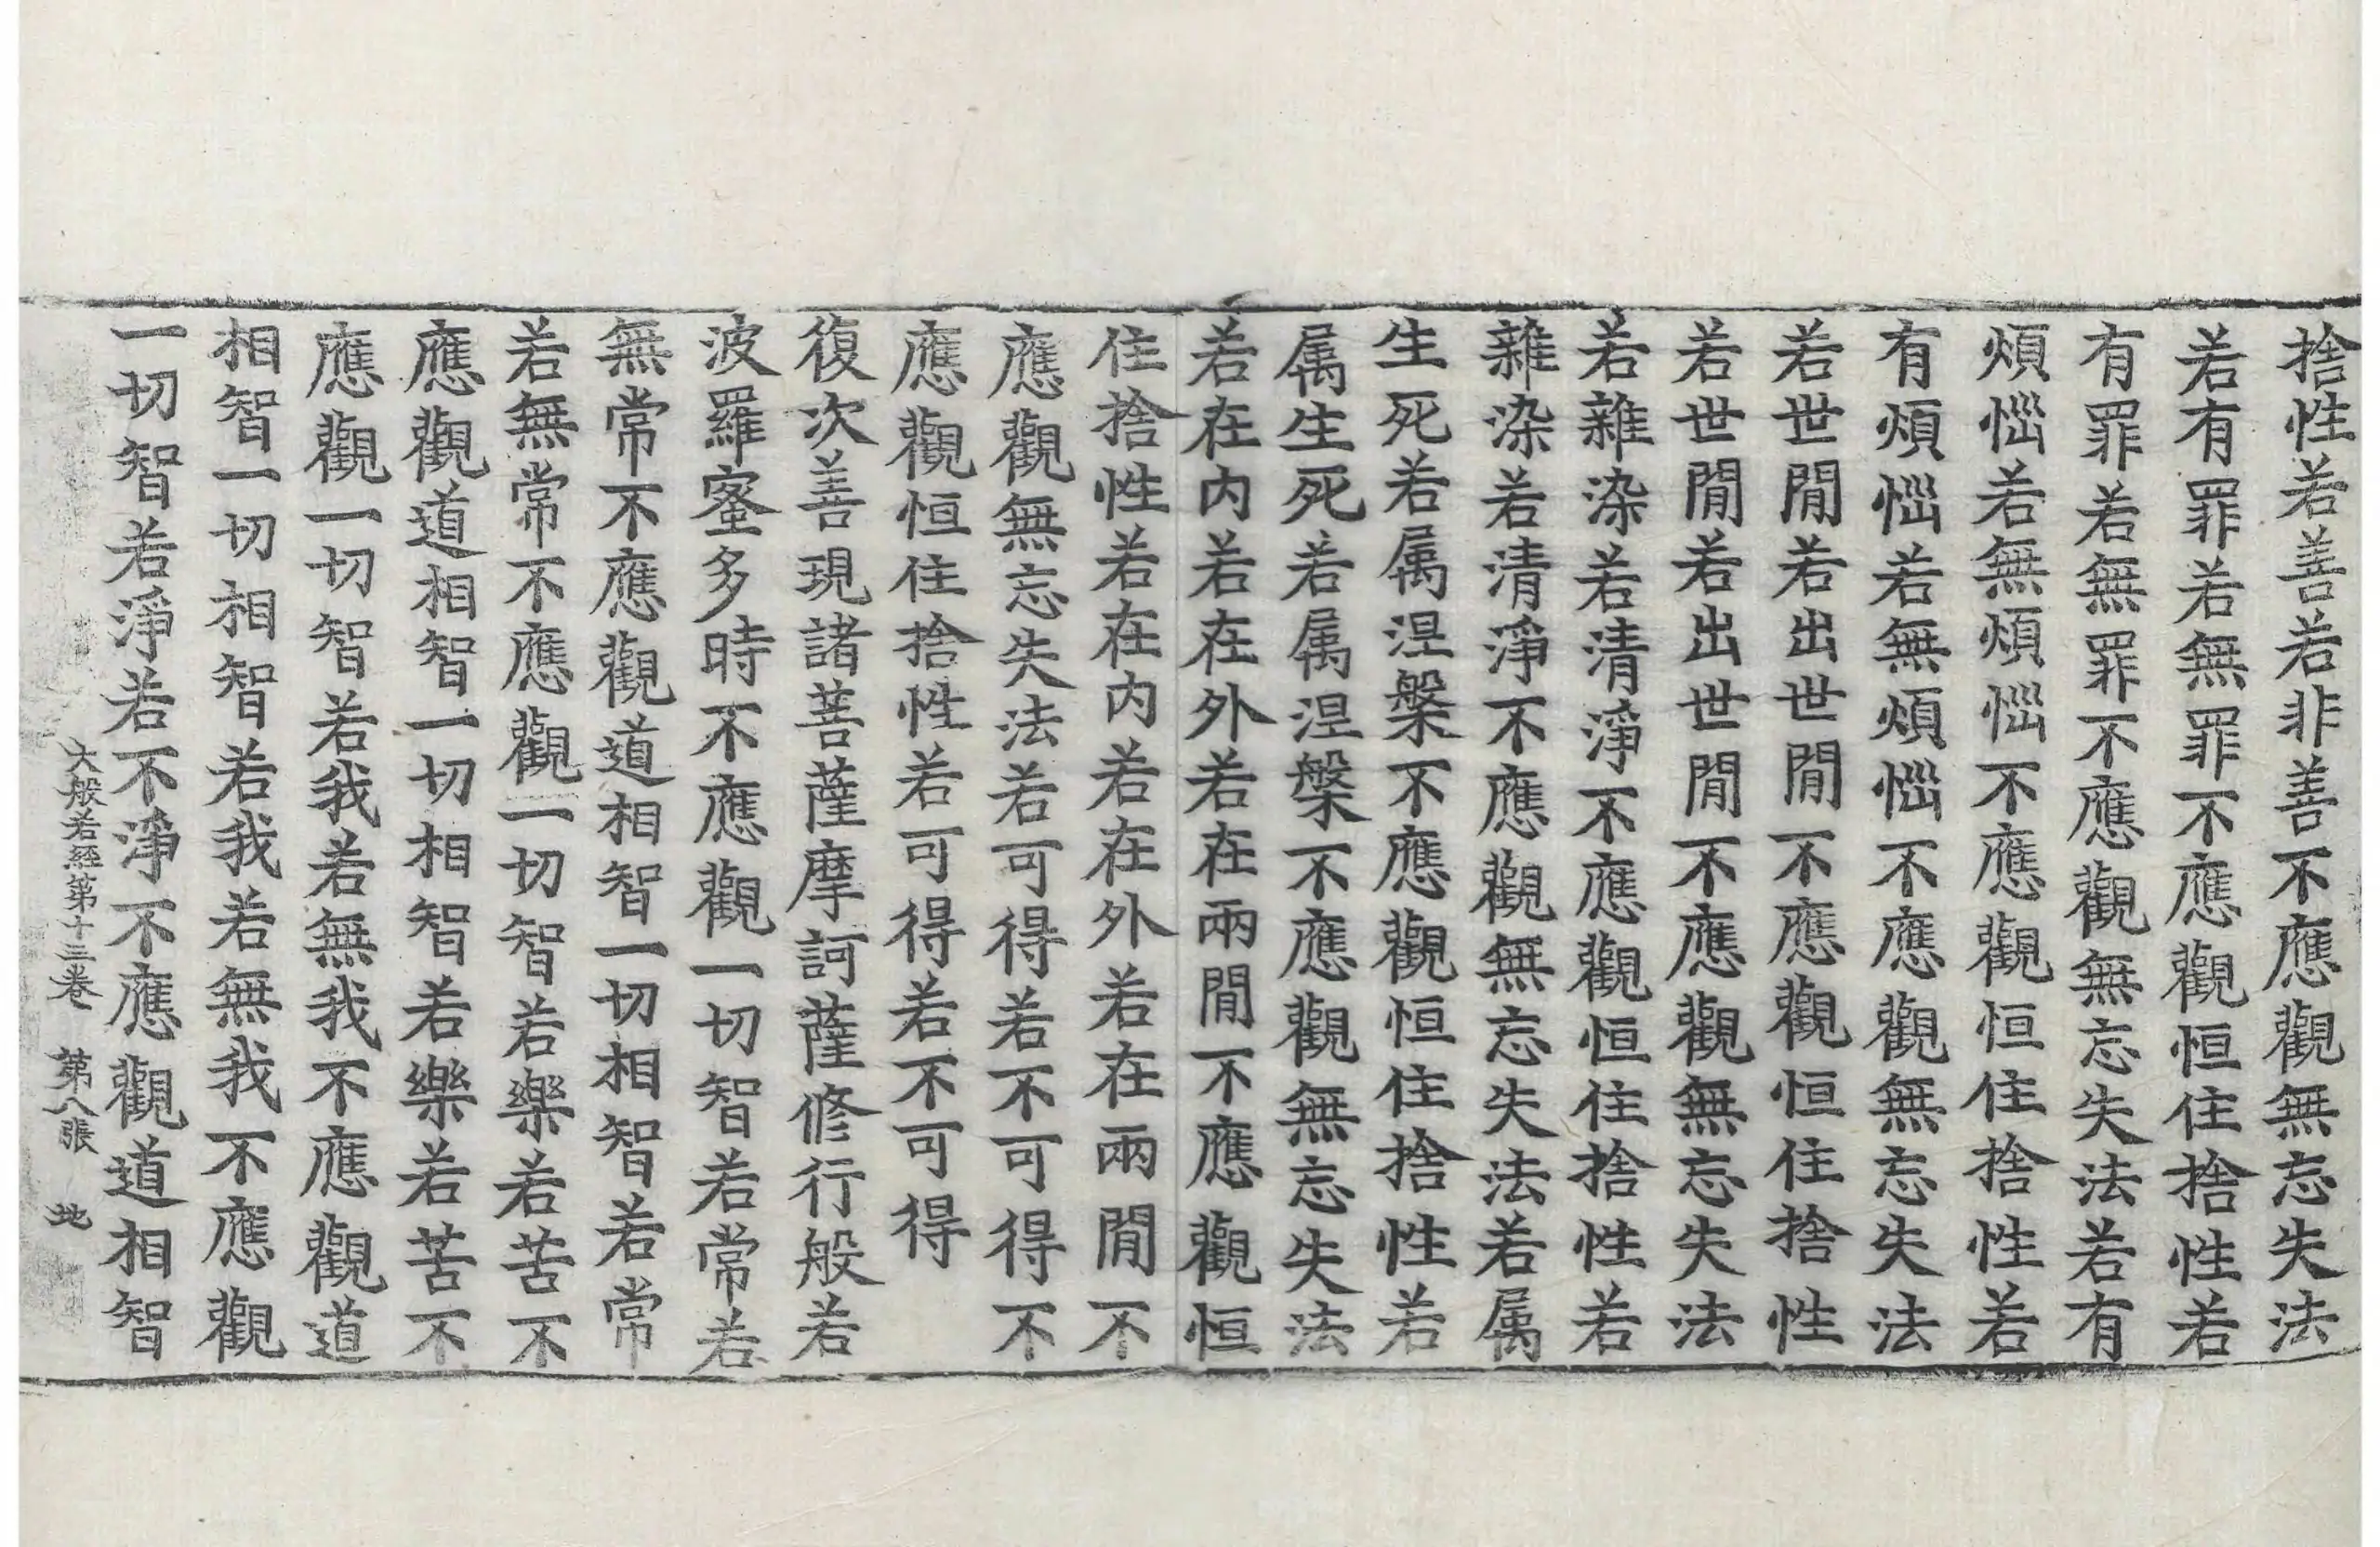 捨性若善若非善不應觀無忘失法
若有罪若無罪不應觀恒住捨性若
有罪若無罪不應觀無忘失法若有
煩惱若無煩惱不應觀恒住捨性若
有煩惱若無煩惱不應觀無忘失法
若世閒若出世閒不應觀恒住捨性
若世閒若出世閒不應觀無忘失法
若雜染若清淨不應觀恒住捨性若
雜染若清淨不應觀無忘失法若属
生死若属涅槃不應觀恒住捨性若
属生死若属涅槃不應觀無忘失法
若在内若在外若在兩閒不應觀恒
住捨性若在内若在外若在兩閒不
應觀無忘失法若可得若不可得不
應觀恒住捨性若可得若不可得
復次善現諸菩薩摩訶薩修行般若
波羅蜜多時不應觀一切智若常若
無常不應觀道相智一切相智若常
若無常不應觀一切智若樂若苦不
應觀道相智一切相智若樂若苦不
應觀一切智若我若無我不應觀道
相智一切相智若我若無我不應觀
一切智若淨若不淨不應觀道相智
大般若經第十三卷 第八張 地